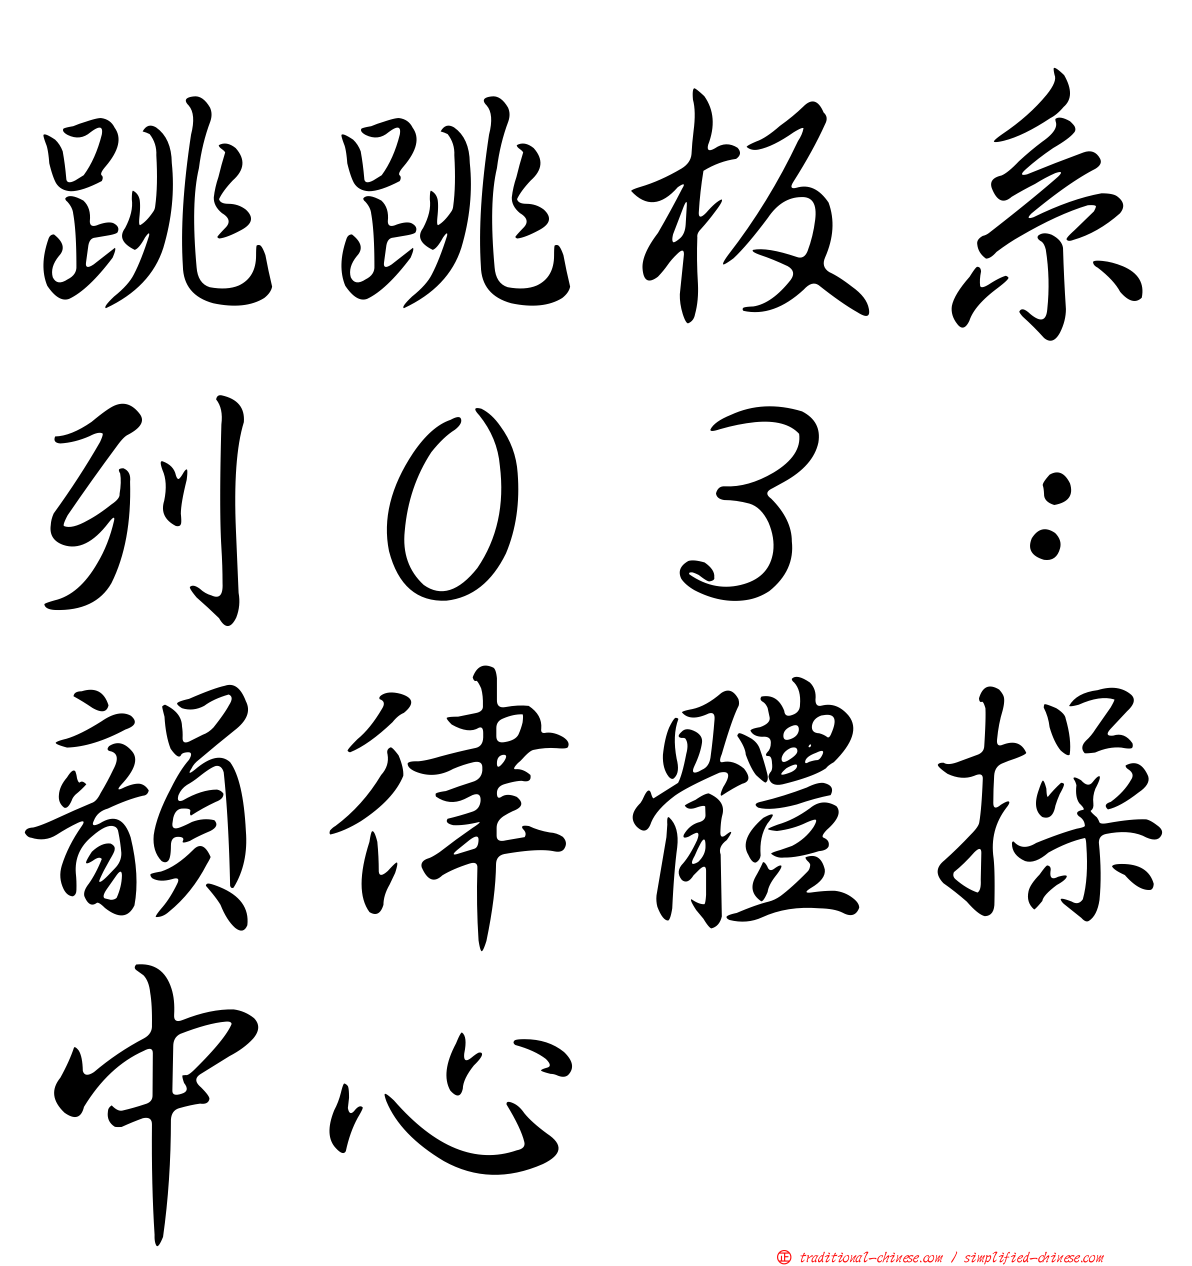 跳跳板系
列０３：
韻律體操
中心
正 traditional-chinese.com / simplified-chinese.com